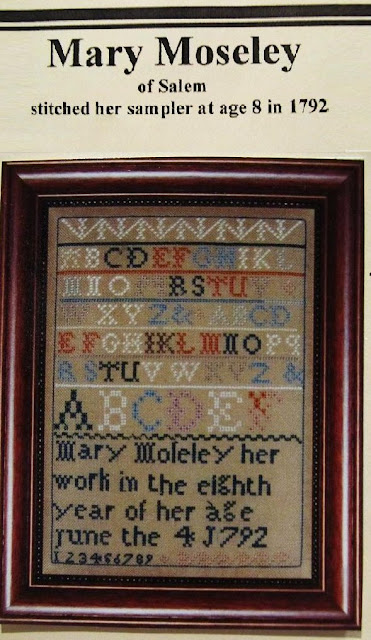 Mary Moseley
of Salem
stitched her sampler at age 8 in 1792
A B C D E F G H I K L
M N O R S T U
X Y Z & A B C D
E F G H I K L M N O P Q
R S T U V W X Y Z &
A B C D E F
Mary Moſeley her
work in the eighth
year of her age
June the 4 1792
1 2 3 4 5 6 7 8 9